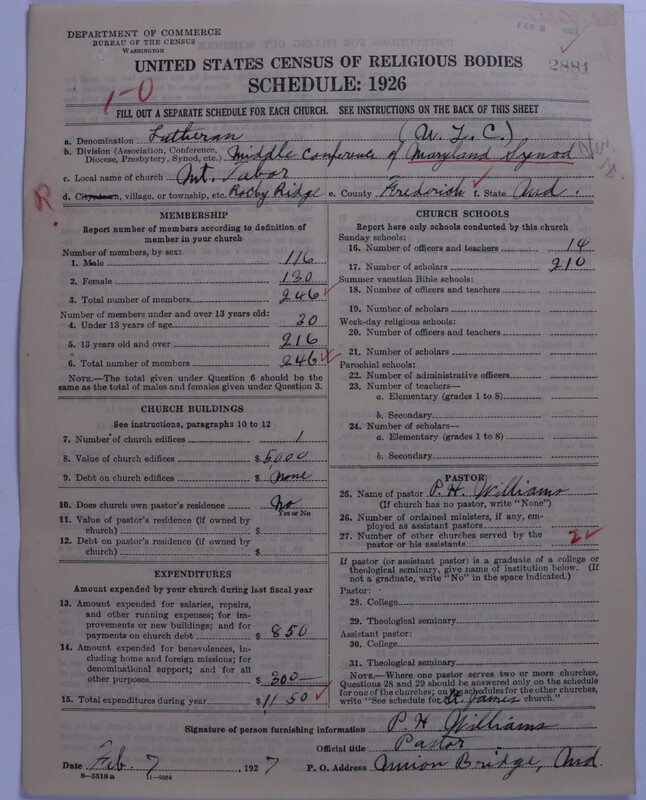 DEPARTMENT OF COMMERCE
BUREAU OF THE CENSUS
WASHINGTON
UNITED STATES CENSUS OF RELIGIOUS BODIES
2881
SCHEDULE: 1926
1-0
FILL OUT A SEPARATE SCHEDULE FOR EACH CHURCH. SEE INSTRUCTIONS ON THE BACK OF THIS SHEET
a. Denomination Lutheran (U. L. C.)
b. Division (Association, Conference, Diocese, Presbytery, Synod, etc.) Middle Conference of Maryland Synod
c. Local name of church Mt. Tabor
R
d. City, town, village, or township, etc. Rocky Ridge e. County Frederick f. State Md.
MEMBERSHIP
Report number of members according to definition of member in your church
Number of members, by sex:
1. Male 116
2. Female 130
3. Total number of members 246
Number of members under and over 13 years old:
4. Under 13 years of age 30
5. 13 years old and over 216
6. Total number of members 246
NOTE.—The total given under Question 6 should be the same as the total of males and females given under Question 3.
CHURCH BUILDINGS
See instructions, paragraphs 10 to 12
7. Number of church edifices 1
8. Value of church edifices $ 5,000
9. Debt on church edifices $ None
10. Does church own pastor's residence No
Yes or No
11. Value of pastor's residence (if owned by church) $
12. Debt on pastor's residence (if owned by church) $
EXPENDITURES
Amount expended by your church during last fiscal year
13. Amount expended for salaries, repairs, and other running expenses; for improvements or new buildings; and for payments on church debt $ 850
14. Amount expended for benevolences, including home and foreign missions; for denominational support; and for all other purposes $ 300
15. Total expenditures during year $ 1150
CHURCH SCHOOLS
Report here only schools conducted by this church
Sunday schools:
16. Number of officers and teachers 14
17. Number of scholars 210
Summer vacation Bible schools:
18. Number of officers and teachers
19. Number of scholars
Week-day religious schools:
20. Number of officers and teachers
21. Number of scholars
Parochial schools:
22. Number of administrative officers
23. Number of teachers—
a. Elementary (grades 1 to 8)
b. Secondary
24. Number of scholars—
a. Elementary (grades 1 to 8)
b. Secondary
PASTOR
25. Name of pastor P. H. Williams
(If church has no pastor, write "None")
26. Number of ordained ministers, if any, employed as assistant pastors
27. Number of other churches served by the pastor or his assistants 2
If pastor (or assistant pastor) is a graduate of a college or theological seminary, give name of institution below. (If not a graduate, write "No" in the space indicated.)
Pastor:
28. College
29. Theological seminary
Assistant pastor:
30. College
31. Theological seminary
NOTE.—Where one pastor serves two or more churches, Questions 28 and 29 should be answered only on the schedule for one of the churches; on the schedules for the other churches, write "See schedule for St. James church."
Signature of person furnishing information P. H. Williams
Official title Pastor
Date Feb. 7, 1927 P. O. Address Union Bridge, Md.
8—5518a 11—9264